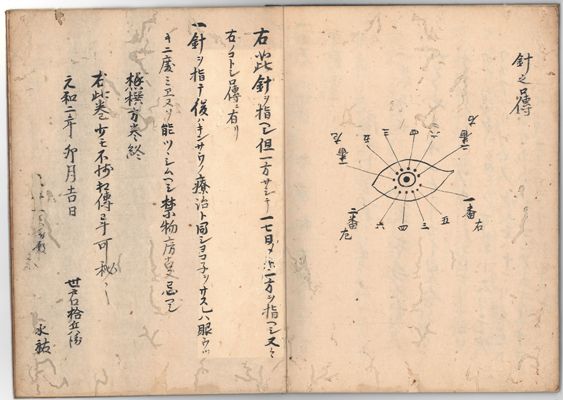 針之口傳
二番右
六
四
三
五
一番左
一番右
五
三
四
六
二番左
右此針ヲ指ヘシ但一方サシテ一七日メニ一方ヲ指ヘシ又々
右ノコトシ口傳ニ有リ
一針ヲ指テ後ハキンサウノ療治ト同シヨコ子ヲサスレハ眼ウツ
キ二度ミエヌソ能ツヽシムヘシ禁物房事忌ヘシ
方巻終
右此巻少モ不残相傳畢可秘々
元和二年卯月吉日
水祐